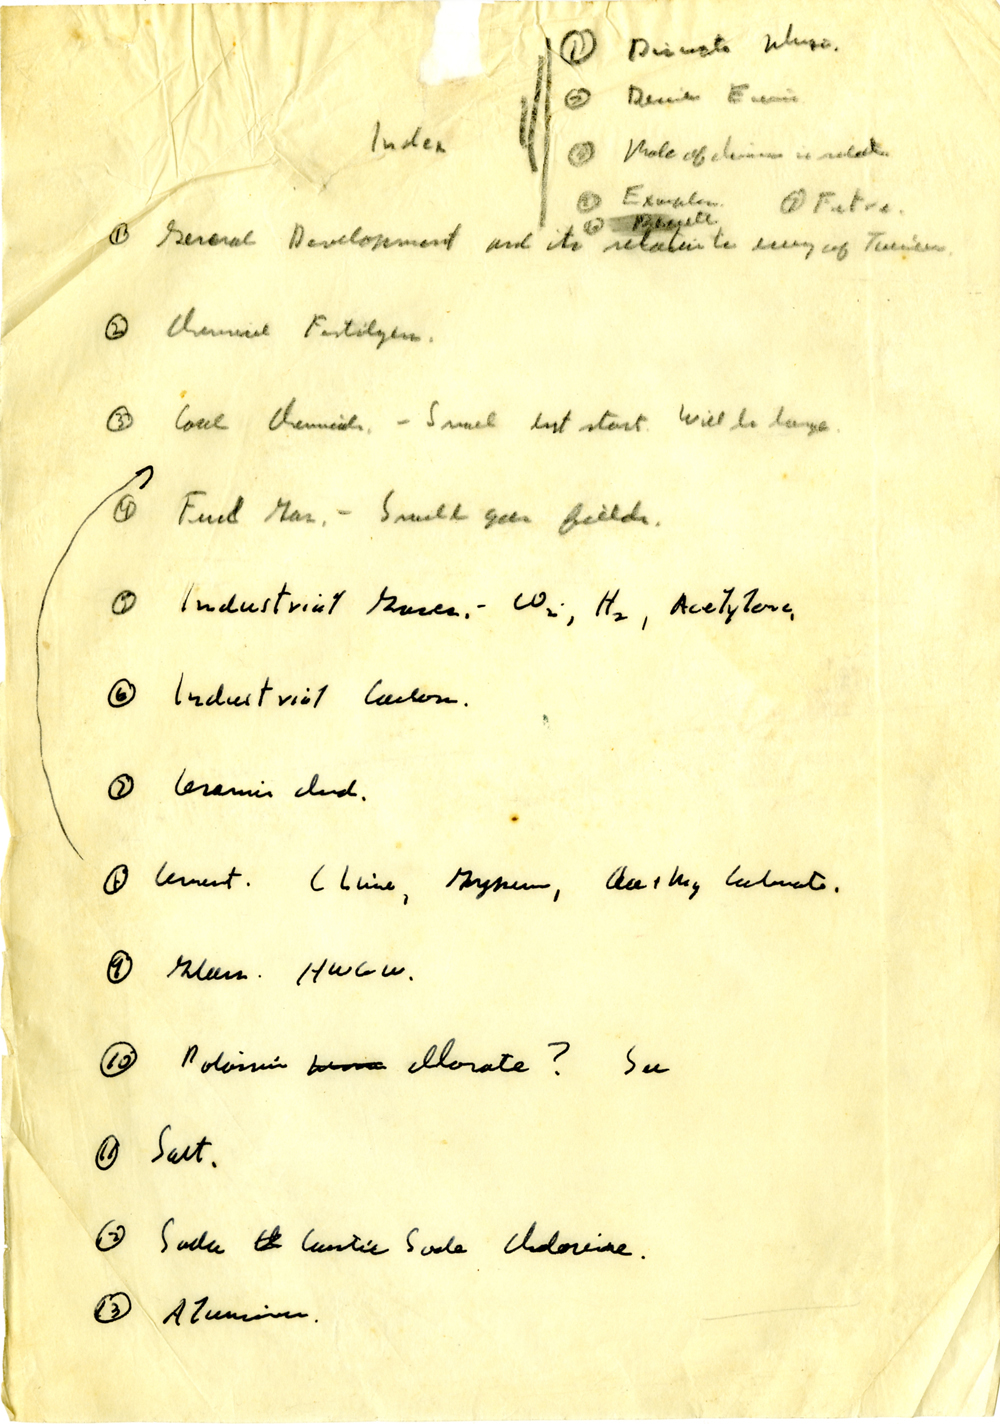 ① Discrete
②
③ Role of is
④ Examples. ⑤ Future.
Index
① General Development and its relation to
② Chemical Fertilizer.
③ Coal Chemicals. - Small but start. Will be large.
④ Fuel Gas. - Small gas fields.
⑤ Industrial Gases. - CO₂, H₂, Acetylene,
⑥ Industrial Carbon.
⑦ Ceramic Ind.
⑧ Cement. ( Lime, Gypsum, Ca + Mg Carbonate.
⑨ Glass. HWGW.
⑩ Potassium Chlorate? See
⑪ Salt.
⑫ Soda Caustic Soda Chlorine.
⑬ Aluminum.